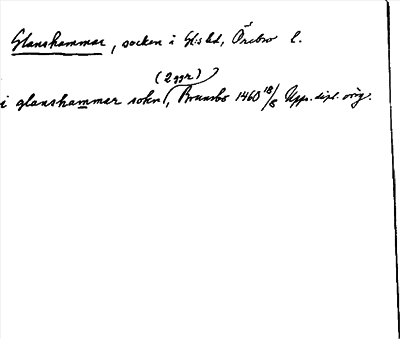 Glanshammar, socken i Gl:s hd, Örebro l.
(2 ggr)
i glanshammar sokn, Brunsbo 1460 18/8 Upps. dipl. orig.